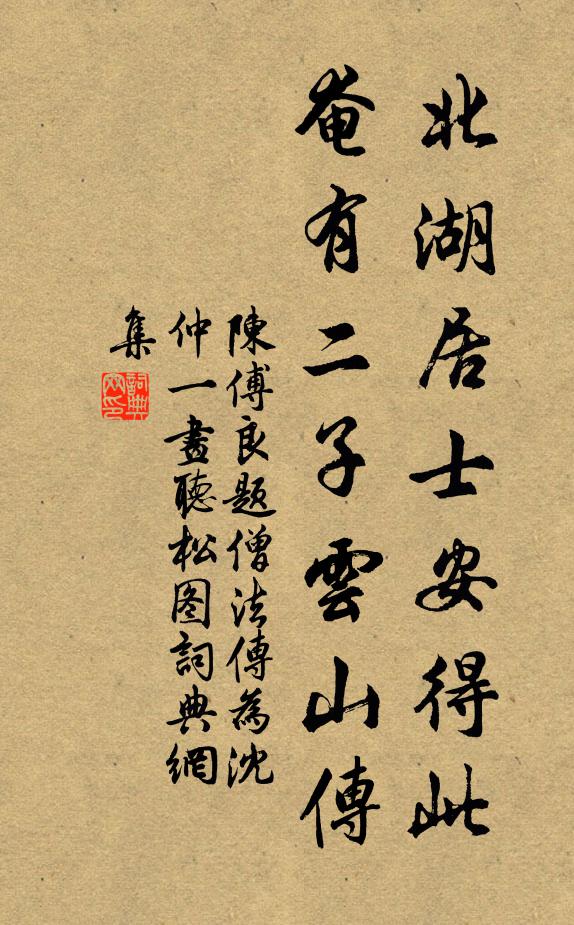 北湖居士安得此
奄有二子雲山傳
陳傅良題僧法傳為沈
仲一畫聽松图詞典網
集
詞典網印